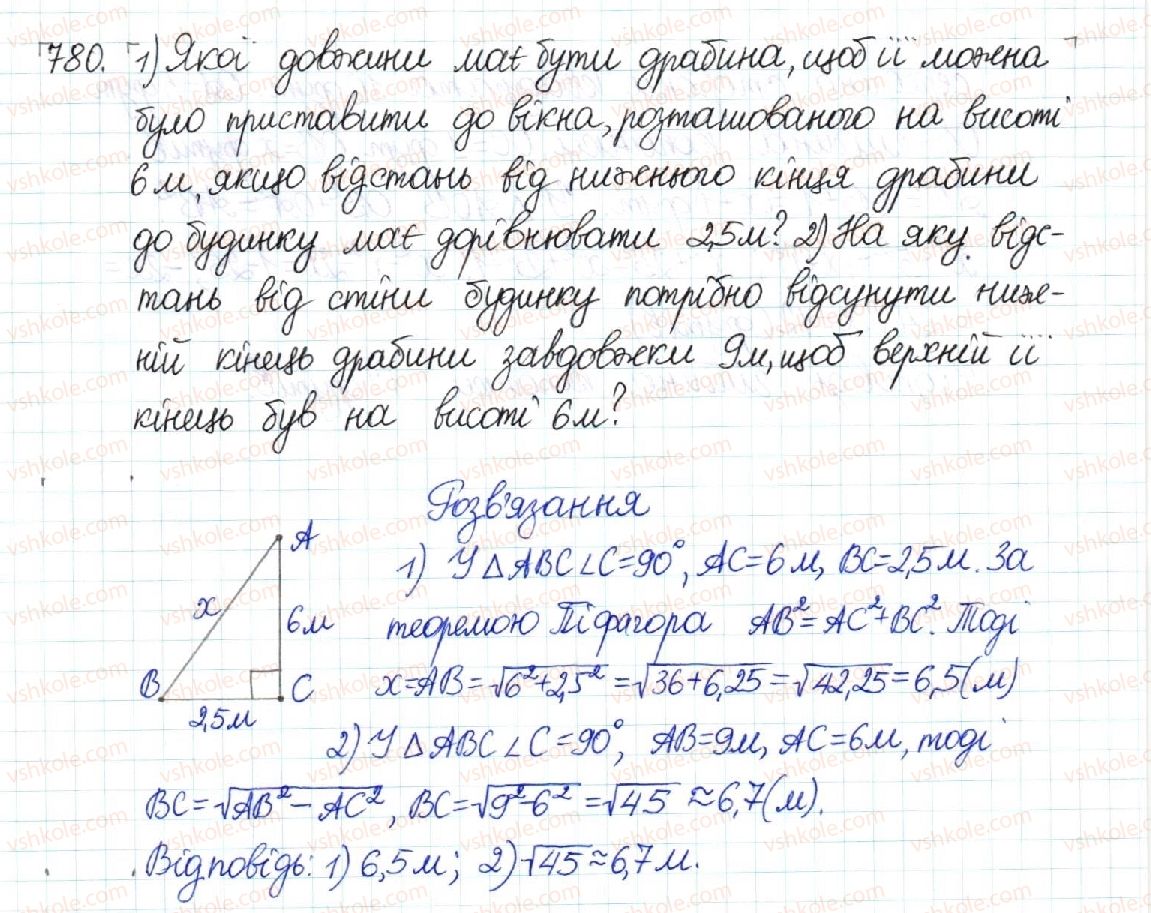 780. 1) Якої довжини має бути драбина, щоб її можна
було приставити до вікна, розташованого на висоті
6 м, якщо відстань від нижнього кінця драбини
до будинку має дорівнювати 2,5 м? 2) На яку відс-
тань від стіни будинку потрібно відсунути ниж-
ній кінець драбини завдовжки 9м, щоб верхній її
кінець був на висоті 6м?
Розв'язання
A
1) У △ABC ∠C=90°, AC=6 м, BC=2,5 м. За
x
6м
теоремою Піфагора AB²=AC²+BC². Тоді
B
C
x=AB=√6²+2,5²=√36+6,25=√42,25=6,5(м)
2,5м
2) У △ABC ∠C=90°, AB=9м, AC=6м, тоді
BC=√AB²-AC², BC=√9²-6²=√45≈6,7(м).
Відповідь: 1) 6,5 м; 2) √45≈6,7 м.
vshkole.com